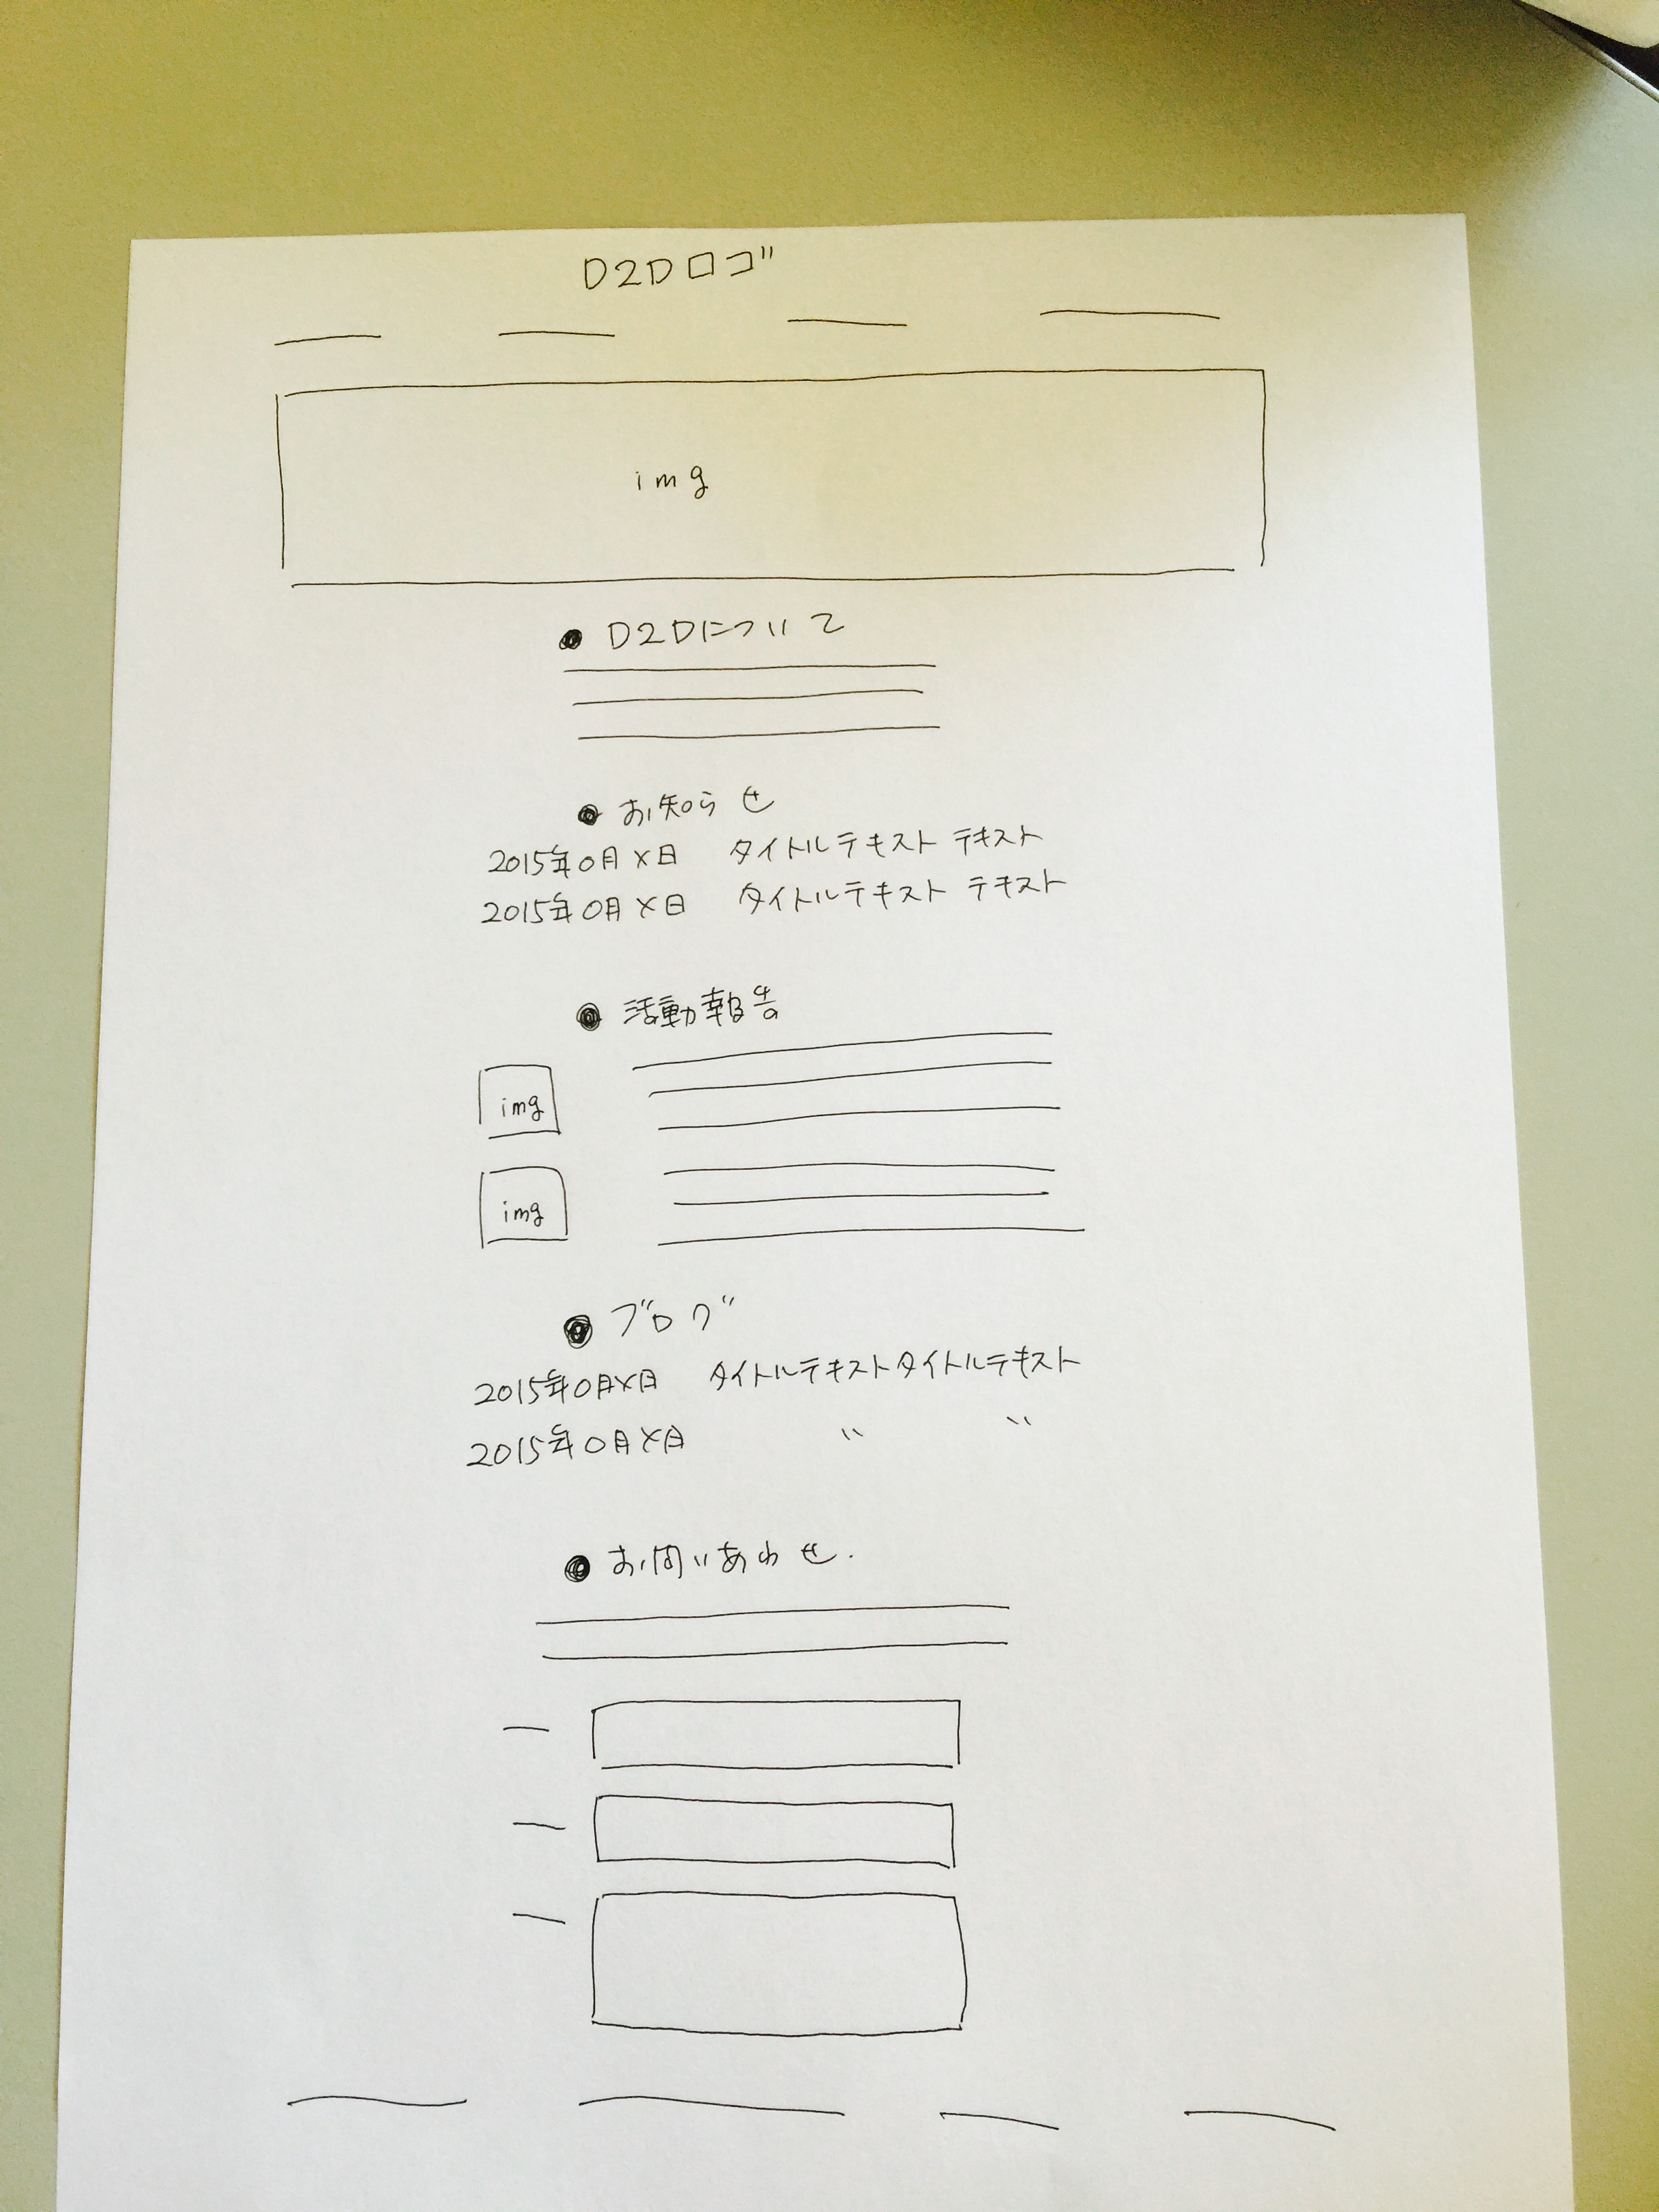 D2Dロゴ
img
● D2Dについて
● お知らせ
2015年0月×日 タイトルテキスト テキスト
2015年0月×日 タイトルテキスト テキスト
● 活動報告
img
img
● ブログ
2015年0月×日 タイトルテキストタイトルテキスト
2015年0月×日 〃 〃
● お問いあわせ.